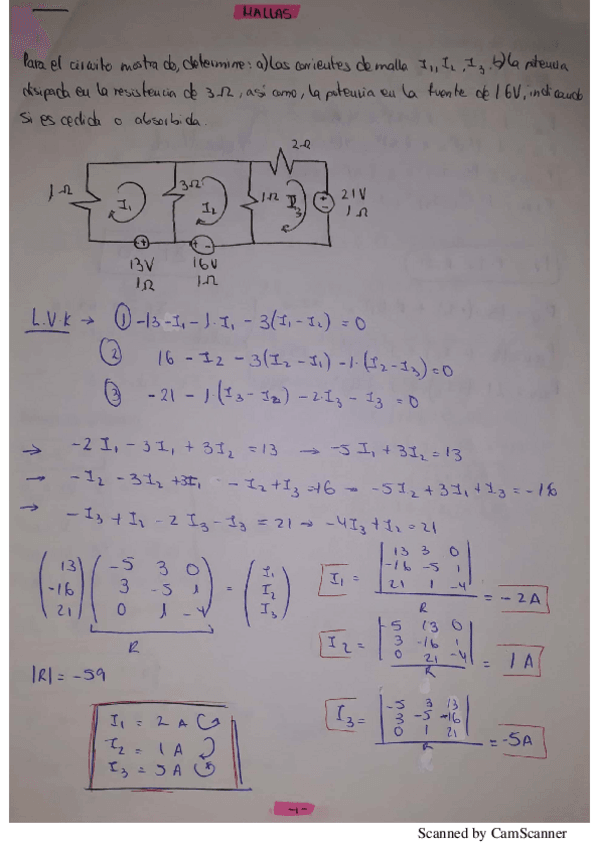 MALLAS
Para el circuito mostrado, determine: a) Las corrientes de malla I₁, I₂, I₃. b) la potencia
disipada en la resistencia de 3Ω, así como, la potencia en la fuente de 16V, indicando
si es cedida o absorbida.
2Ω
1Ω I₁ 3Ω I₂ 1Ω I₃ + - 21V
1Ω
+ + -
13V 16V
1Ω 1Ω
L.V.K → ① -13 - I₁ - 1·I₁ - 3(I₁ - I₂) = 0
② 16 - I₂ - 3(I₂ - I₁) - 1·(I₂ - I₃) = 0
③ -21 - 1·(I₃ - I₂) - 2·I₃ - I₃ = 0
→ -2I₁ - 3I₁ + 3I₂ = 13 → -5I₁ + 3I₂ = 13
→ -I₂ - 3I₂ + 3I₁ - I₂ + I₃ = -16 → -5I₂ + 3I₁ + I₃ = -16
→ -I₃ + I₂ - 2I₃ - I₃ = 21 → -4I₃ + I₂ = 21
13 -5 3 0 I₁
-16 3 -5 1 = I₂
21 0 1 -4 I₃
R
|R| = -59
I₁ = 13 3 0
-16 -5 1
21 1 -4
R = -2A
I₂ = -5 13 0
3 -16 1
0 21 -4
R = 1A
I₃ = -5 3 13
3 -5 -16
0 1 21
R = -5A
I₁ = 2A ↺
I₂ = 1A ↻
I₃ = 5A ↺
-1-
Scanned by CamScanner